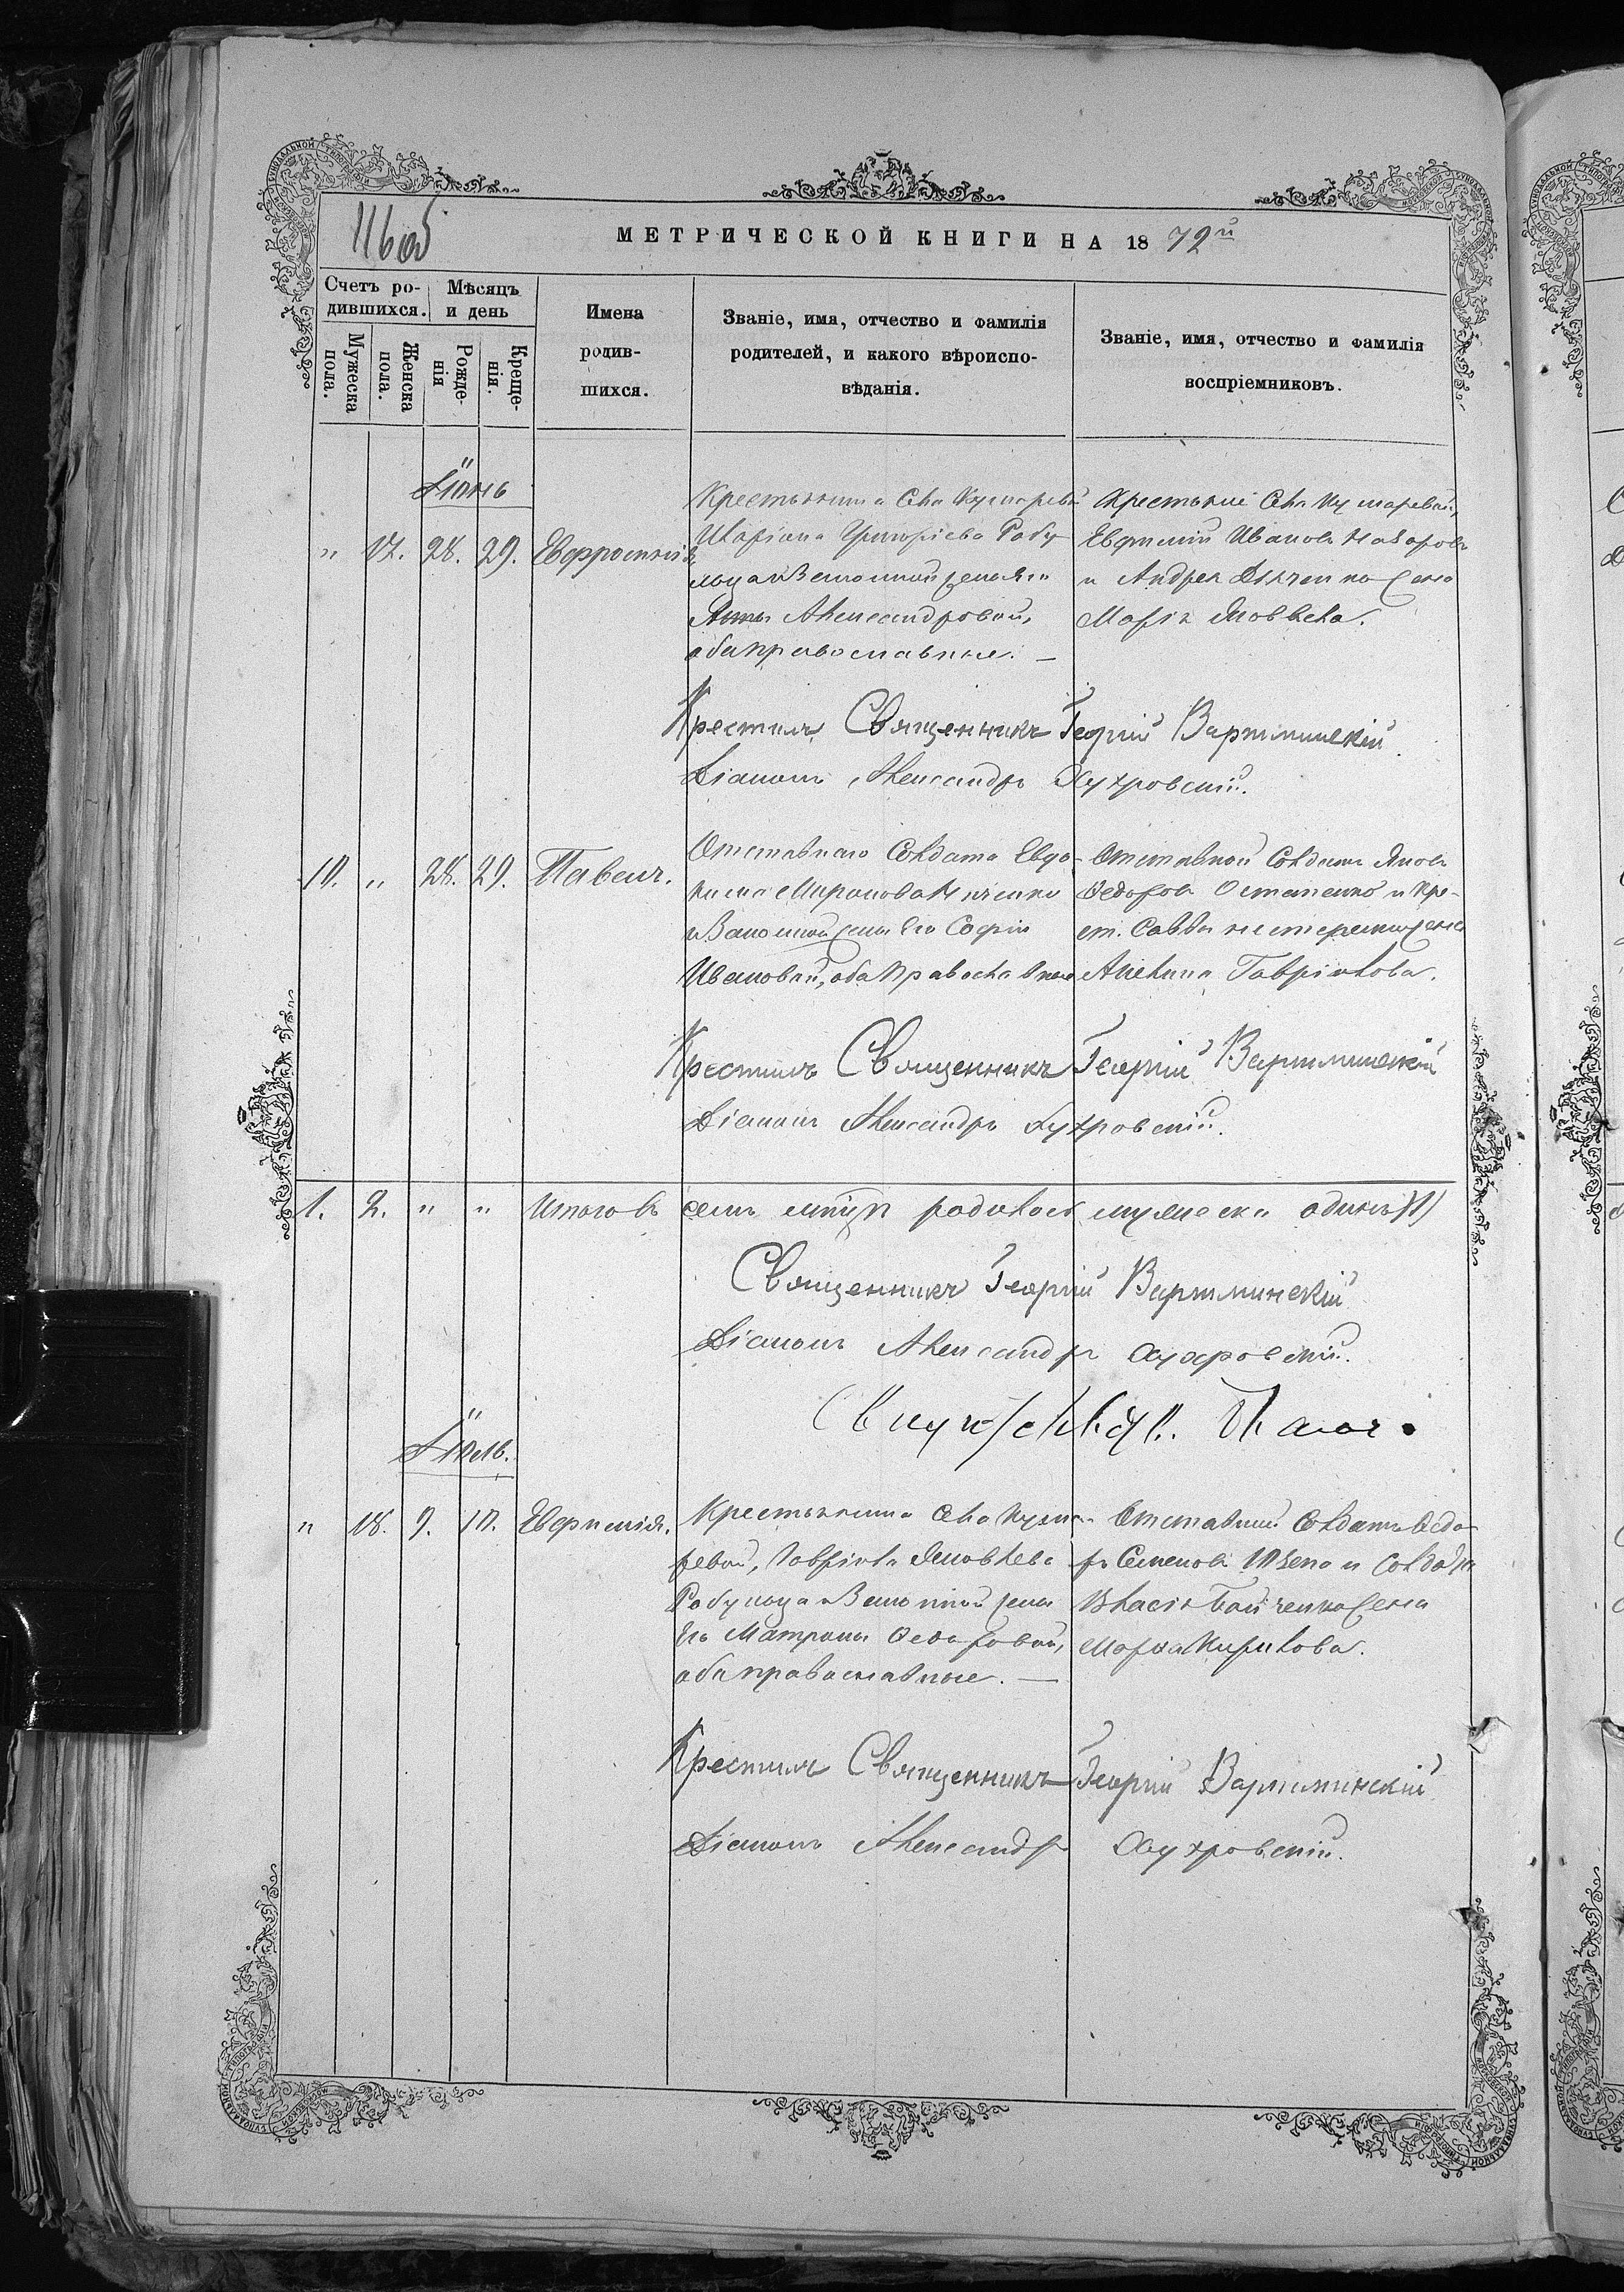 116 об
МЕТРИЧЕСКОЙ КНИГИ НА 1872й
Счетъ ро-
дившихся.
Мѣсяцъ
и день
Мужеска
пола.
Женска
пола.
Рожде-
нія
Креще-
нія.
Имена
родив-
шихся.
Званіе, имя, отчество и фамилія
родителей, и какого вѣроиспо-
вѣданія.
Званіе, имя, отчество и фамилія
воспріемниковъ.
Іюнь
" 17. 28. 29. Евфросинія
Крестьянина Села Кумаревой
Григоріева Рабу
и Законной жены
Александровой,
оба православные. —
Крестьяне Села Кумаревой,
Евфимій Ивановъ Назаровъ
и Андрея Дяченка жена
Марія Яковлева.
Крестилъ Священникъ Георгій Вартминскій
Діаконъ Александръ
10. " 28. 29. Павелъ.
Отставнаго Солдата Евдо-
кима Миронова
и Законной жены Его Софіи
Ивановой, оба Православные
Отставной Солдатъ Яковъ
Федоровъ Остапенко и кре-
ст. Саввы Нестеренка жена
Акилина Гавріилова.
Крестилъ Священникъ Георгій Вартминскій
Діаконъ Александръ
1. 2. " " Итого въ семъ мѣсяцѣ родилось мужеска одинъ (1)
Священникъ Георгій Вартминскій
Діаконъ Александръ
Іюль.
" 18. 9. 10. Евфимія.
Крестьянина Села Кума-
ревой, Гавріила Яковлева
Рабухоца и Законной жены
Его Матроны Федоровой,
оба православные. —
Отставный Солдатъ Федо-
ръ Семеновъ и Солдата
Власія Бойченка жена
Марѳа Кирилова.
Крестилъ Священникъ Георгій Вартминскій
Діаконъ Александръ